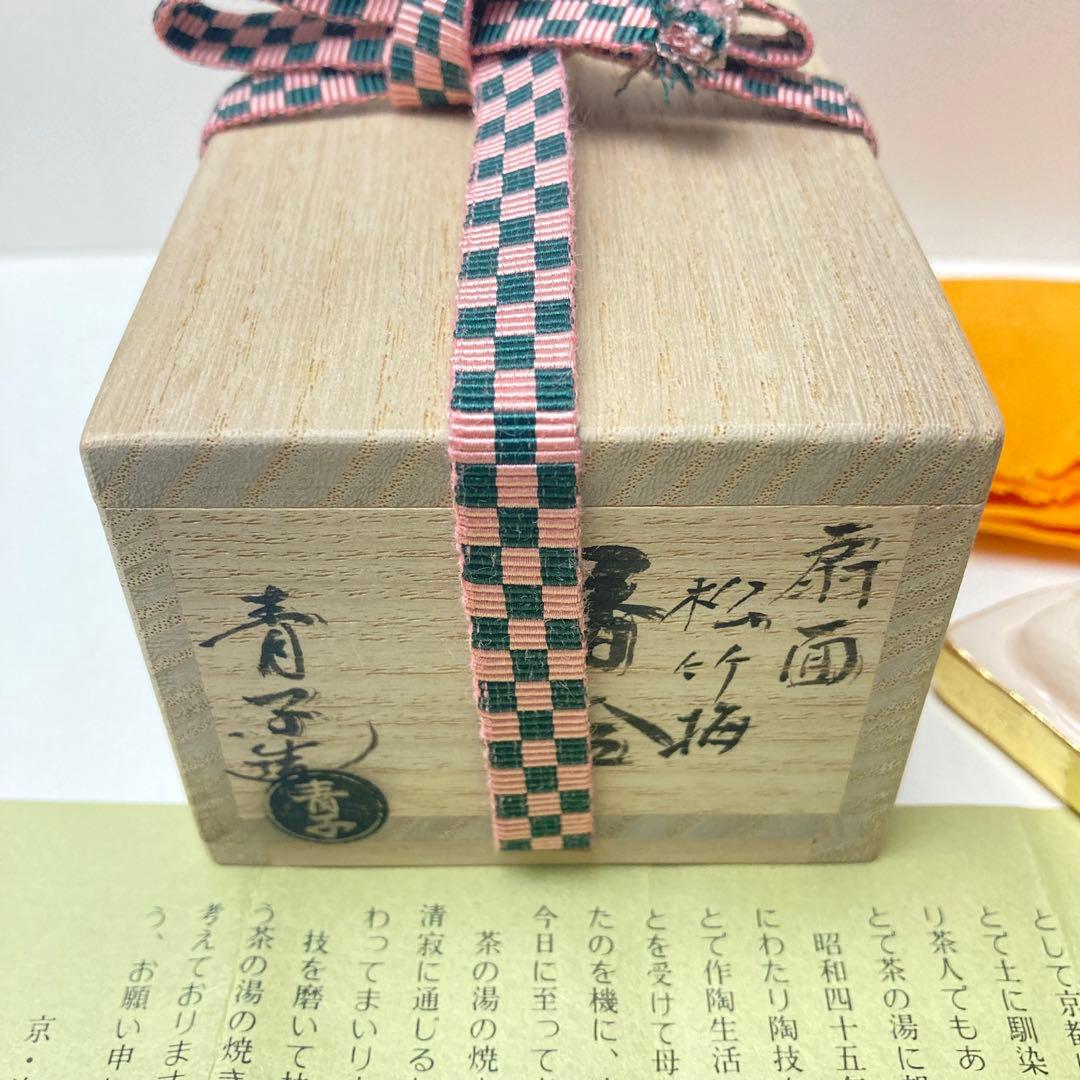 扇面
松竹梅
香合
青子造
青子
として京都
とで土に馴染
り茶人でもあ
とで茶の湯に
昭和四十五年
にわたり陶技
とで作陶生活
とを受けて母
たのを機に、
今日に至って
茶の湯の焼
清寂に通じる
わってまいり
技を磨いて
う茶の湯の焼き
考えております
う、お願い申
京・